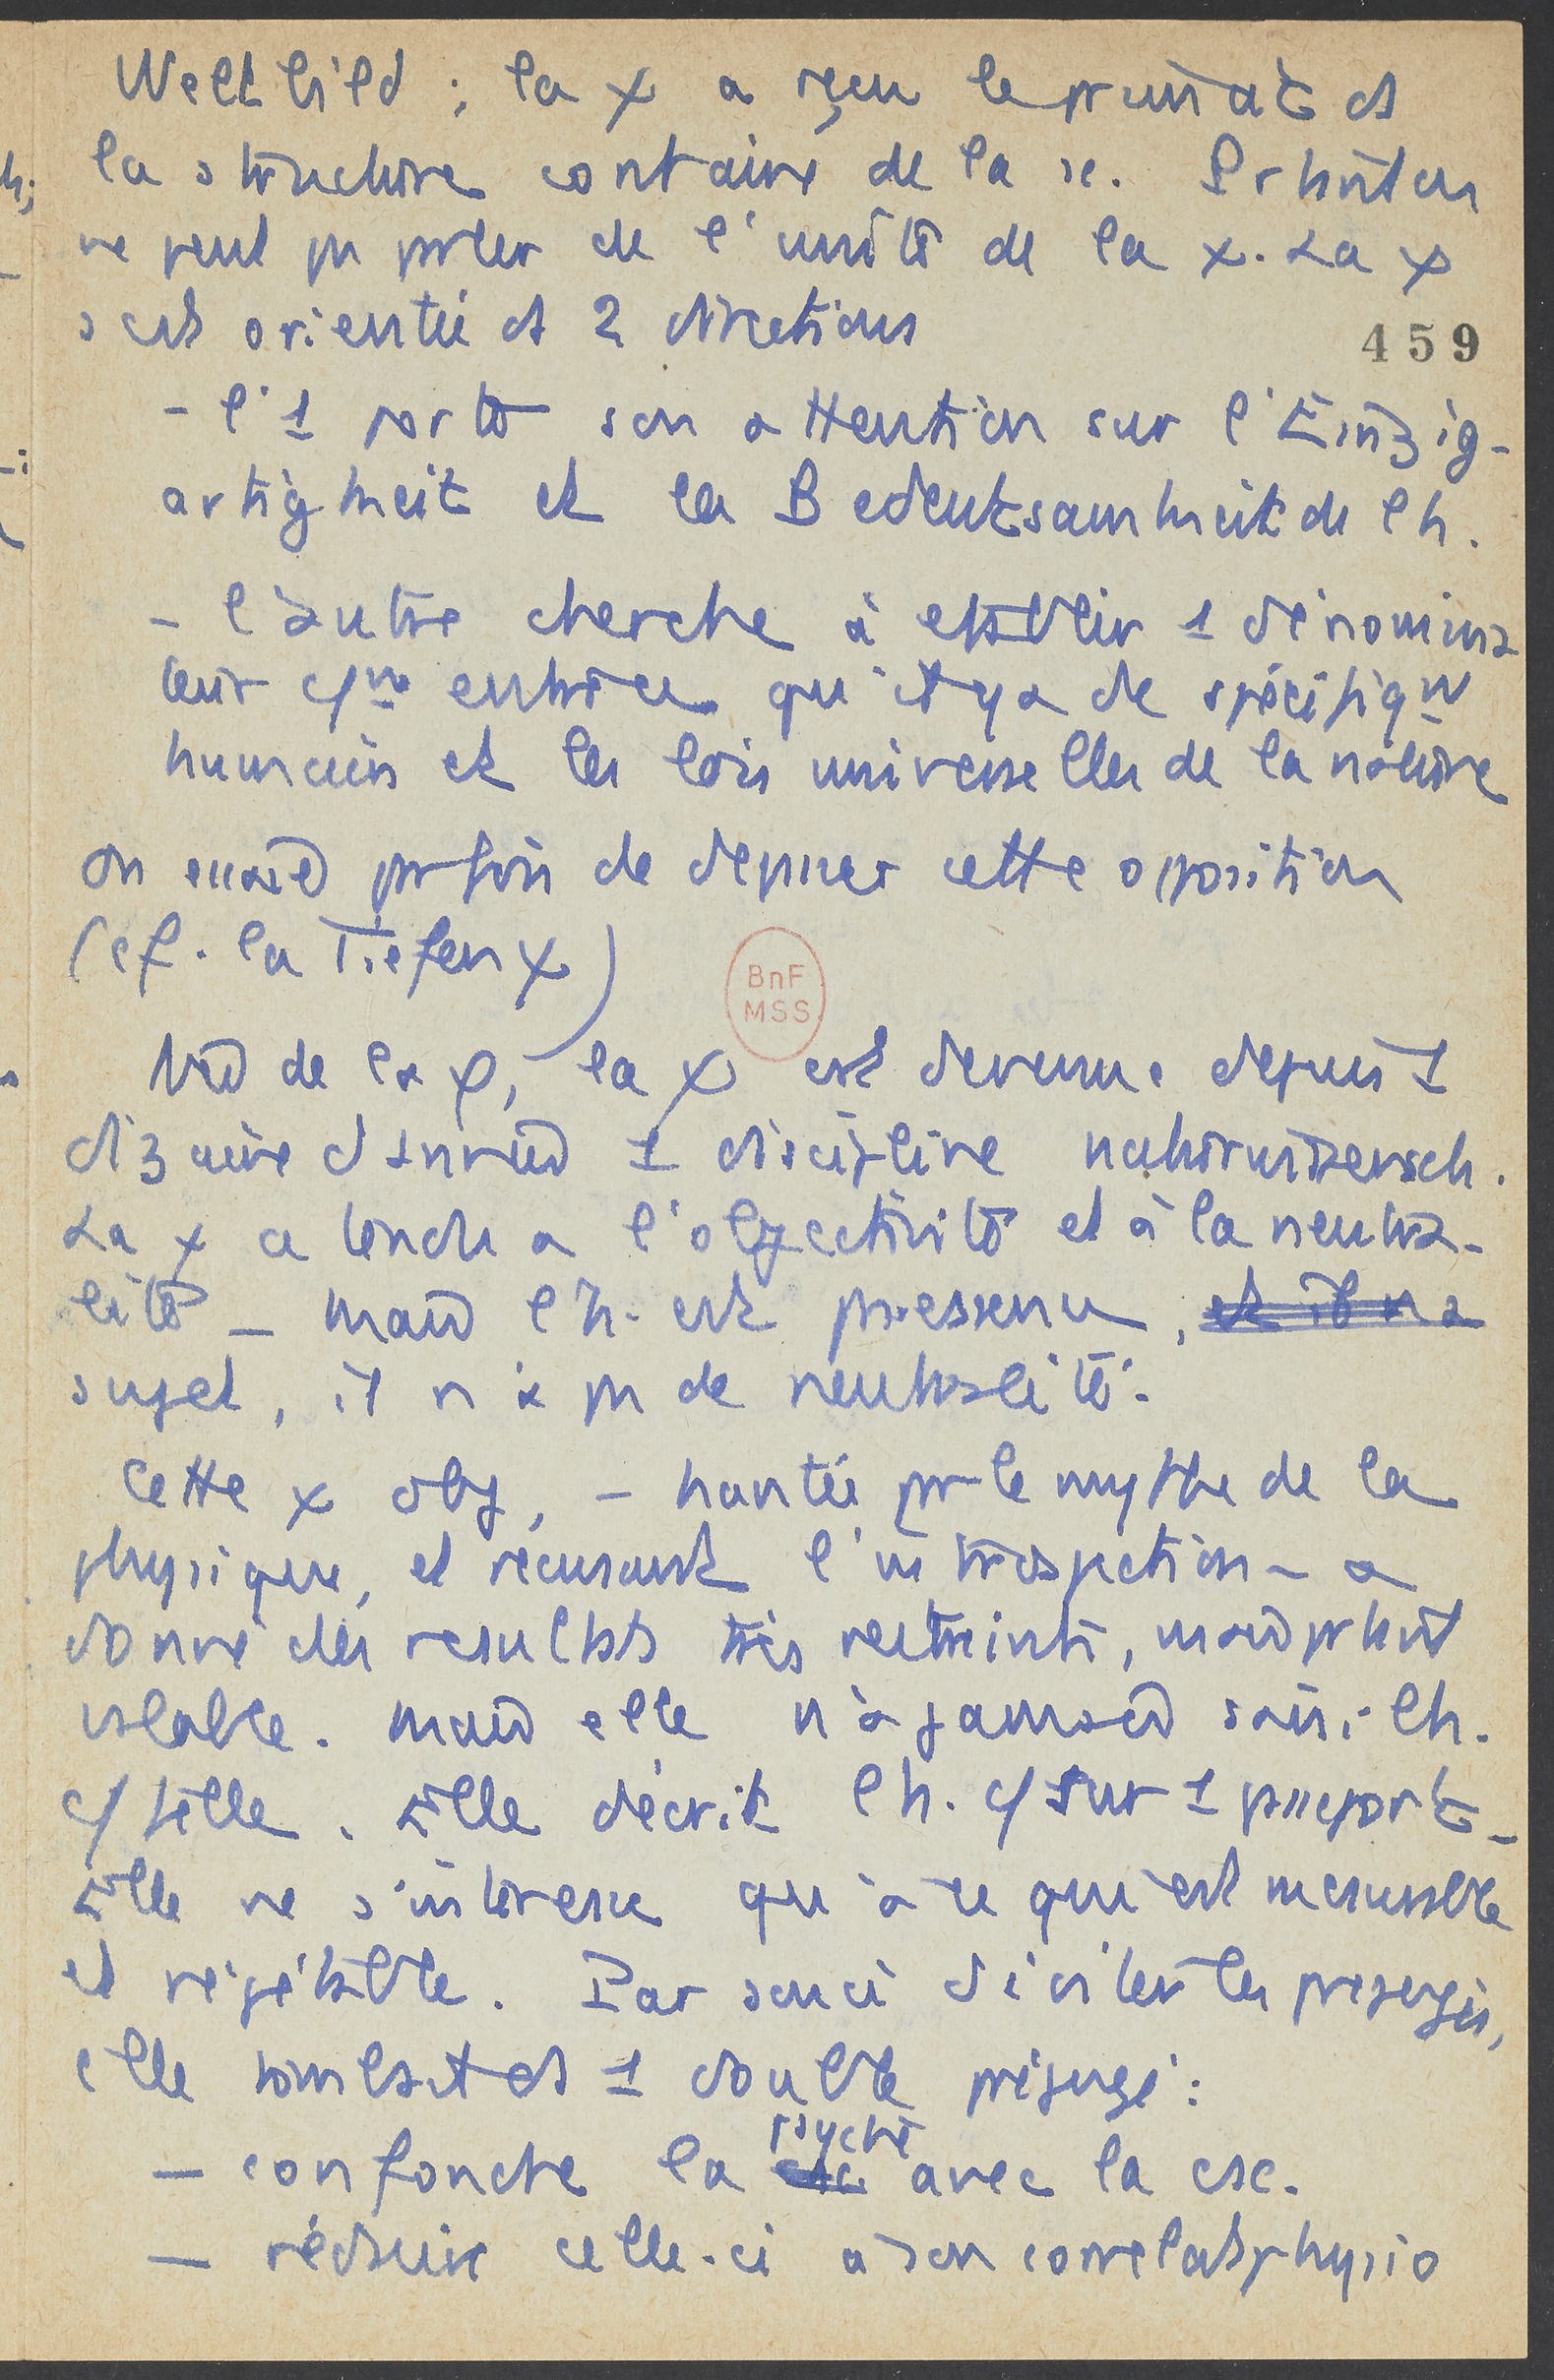 Weltbild ; la χ a reçu le primat et
la structure contraire de la sc. Partant on
ne peut pas parler de l'unité de la χ. La χ
est orientée ds 2 directions
459
- l'1 porte son attention sur l'Einzig-
artigkeit et la Bedeutsamkeit de l'h.
- l'autre cherche à etablir 1 dénomina
teur c/mn entre ce qu'il y a de spécifiqut
humain et les lois universelles de la nature
On essaie parfois de depasser cette opposition
(cf. la Tiefen χ)
de la φ, la χ est devenue depuis 1
dizaine d'années 1 discipline naturwissensch.
La χ a tendu a l'objectivité et à la neutra-
lité - mais l'h. est
sujet, il n'a pas de neutralité.
Cette χ obj, - hantée par le mythe de la
physique, et récusant l'introspection - a
donné des resultats très restreints, mais partout
valable. Mais elle n'a jamais saisi l'h.
c/ telle. Elle décrit l'h. c/ sur 1 passeport -
Elle ne s'interesse qu'à ce qui est mesurable
et répétable. Par souci d'éviter les prejugés,
elle tombait ds 1 double préjugé :
- confondre la psyché avec la csc.
- réduire celle-ci à son correlats physio
BnF
MSS